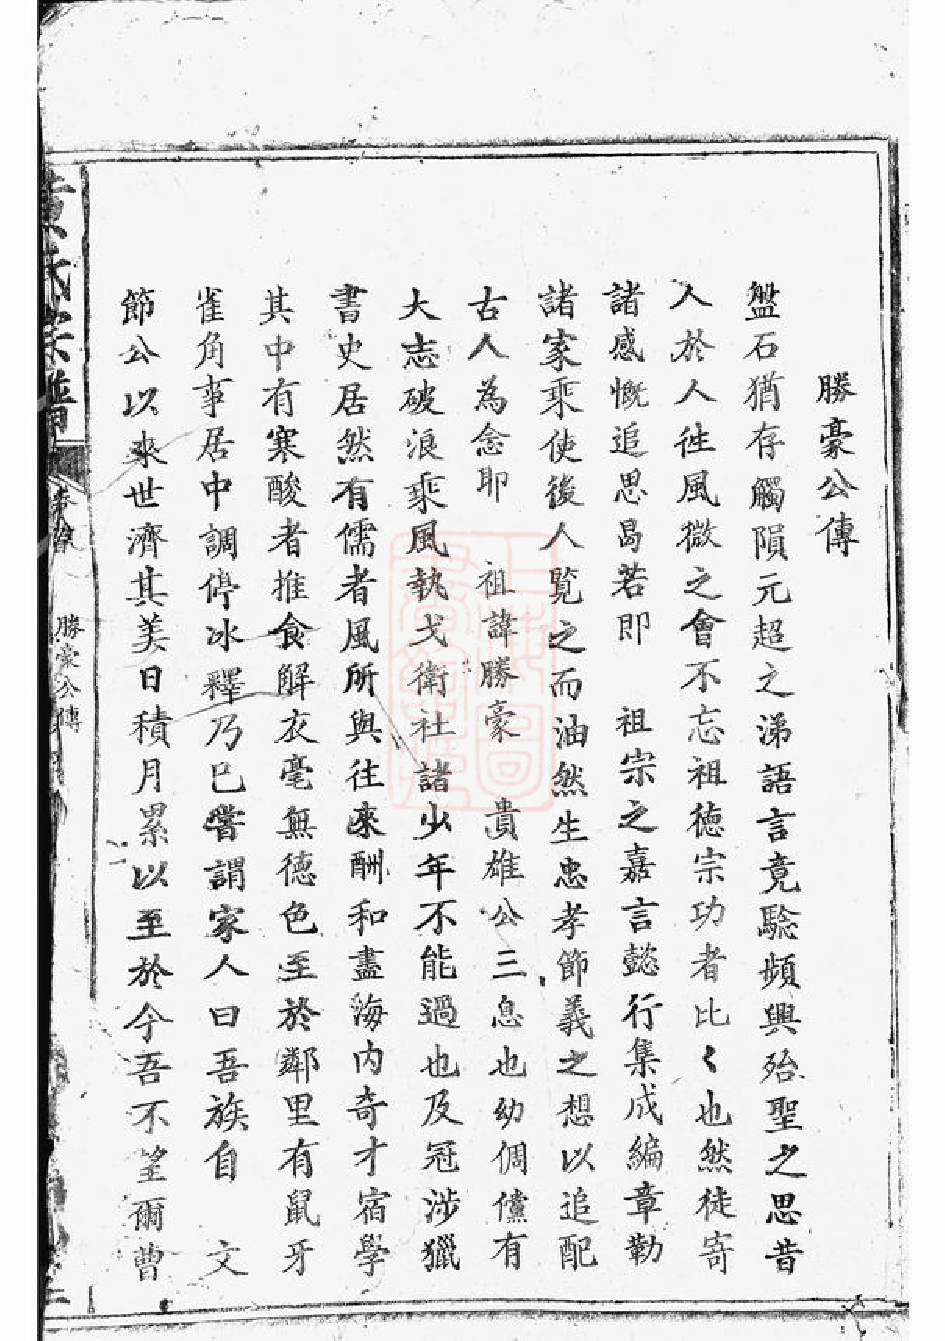 勝豪公傳
盤石猶存觸隕元超之涕語言竟驗頻興殆聖之思昔
人於人徃風微之會不忘祖徳宗功者比〻也然徒寄
諸感慨追思曷若即 祖宗之嘉言懿行集成編章勒
諸家乘使後人覧之而油然生忠孝節義之想以追配
古人為念耶 祖諱勝豪 貴雄公三息也幼倜儻有
大志破浪乘風執戈衛社諸少年不能過也及冠涉獵
書史居然有儒者風所與往來酬和盡海内奇才宿學
其中有寒酸者推食解衣毫無徳色至於鄰里有鼠牙
雀角事居中調停冰釋乃已嘗謂家人曰吾族自 文
節公以來世濟其美日積月累以至於今吾不望爾曹
黄氏宗譜
卷首
勝豪公傳